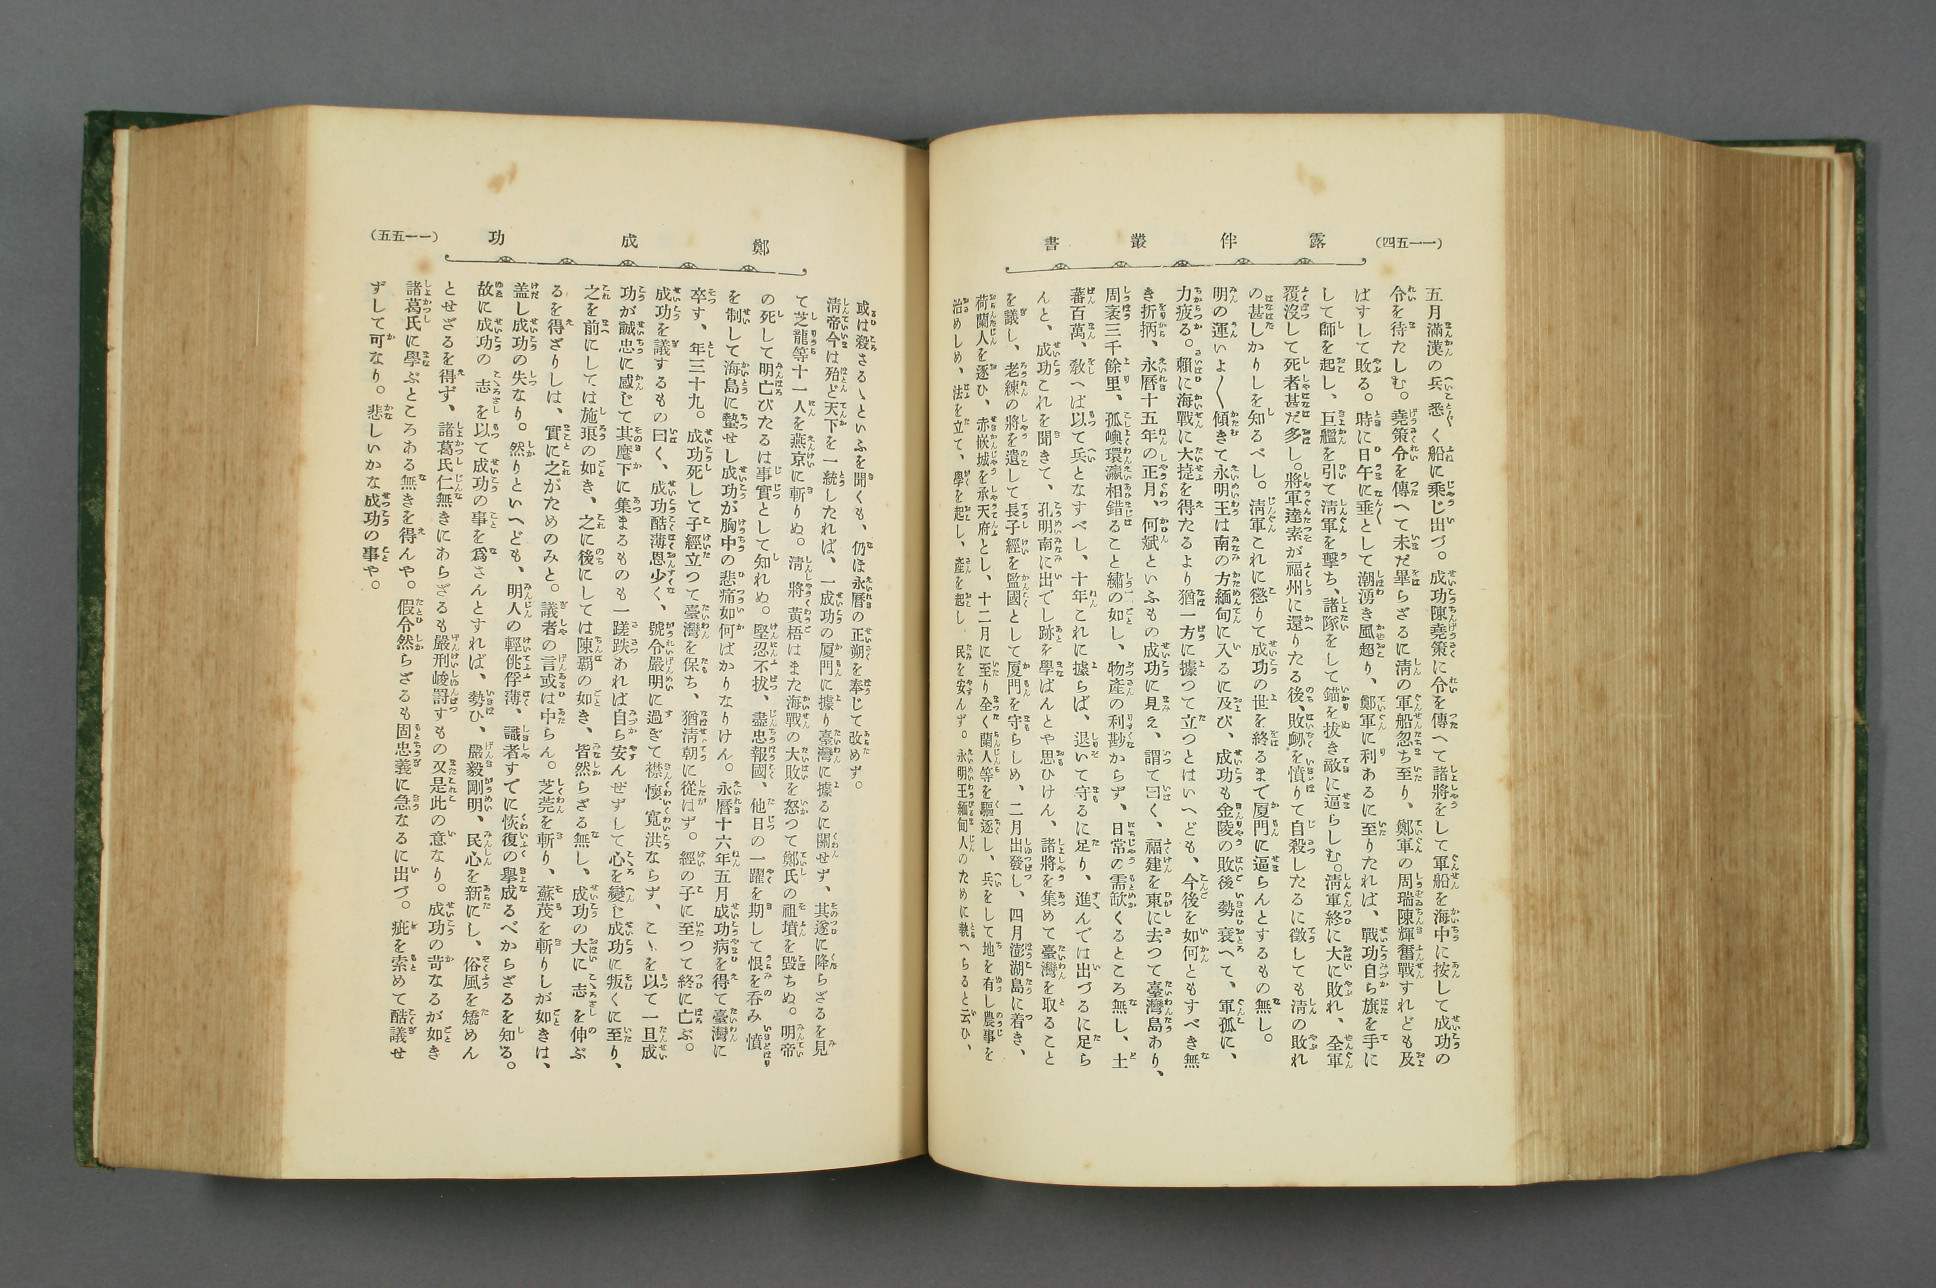 (一一五四)
露伴叢書
五月滿漢の兵悉く船に乘じ出づ。成功陳堯策に令を傳へて諸將をして軍船を海中に按して成功の
令を待たしむ。堯策令を傳へて未だ畢らざるに淸の軍船忽ち至り、鄭軍の周瑞陳輝奮戰すれども及
ばすして敗る。時に日午に垂として潮湧き風超り、鄭軍に利あるに至りたれば、戰功自ら旗を手に
して師を起し、巨艦を引て淸軍を擊ち、諸隊をして錨を拔き敵に逼らしむ。淸軍終に大に敗れ、全軍
覆沒して死者甚だ多し。將軍達素が福州に還りたる後、敗衂を憤りて自殺したるに徵しても淸の敗れ
の甚しかりしを知るべし。淸軍これに懲りて成功の世を終るまで厦門に逼らんとするもの無し。
明の運いよ〱傾きて永明王は南の方緬甸に入るに及び、成功も金陵の敗後勢衰へて、軍孤に、
力疲る。賴に海戰に大捷を得たるより猶一方に據つて立つとはいへども、今後を如何ともすべき無
き折柄、永曆十五年の正月、何斌といふもの成功に見え、謂て曰く、福建を東に去つて臺灣島あり、
周袤三千餘里、孤嶼環瀛相錯ること繡の如し、物產の利尠からず、日常の需缺くるところ無し、土
蕃百萬、敎へば以て兵となすべし、十年これに據らば、退いて守るに足り、進んでは出づるに足ら
んと、成功これを聞きて、孔明南に出でし跡を學ばんとや思ひけん、諸將を集めて臺灣を取ること
を議し、老練の將を遺して長子經を監國として厦門を守らしめ、二月出發し、四月澎湖島に着き、
荷蘭人を逐ひ、赤嵌城を承天府とし、十二月に至り全く蘭人等を驅逐し、兵をして地を有し農事を
治めしめ、法を立て、學を起し、產を起し、民を安んず。永明王緬甸人のために執へらると云ひ、
(一一五五)
鄭成功
或は殺さるゝといふを聞くも、仍ほ永曆の正朔を奉じて改めず。
淸帝今は殆ど天下を一統したれば、一成功の厦門に據り臺灣に據るに關せず、其遂に降らざるを見
て芝龍等十一人を燕京に斬りぬ。淸將黃梧はまた海戰の大敗を怒つて鄭氏の祖墳を毀ちぬ。明帝
の死して明亡びたるは事實として知れぬ。堅忍不拔、盡忠報國、他日の一躍を期して恨を呑み憤
を制して海島に蟄せし成功が胸中の悲痛如何ばかりなりけん。永曆十六年五月成功病を得て臺灣に
卒す、年三十九。成功死して子經立つて臺灣を保ち、猶淸朝に從はず。經の子に至つて終に亡ぶ。
成功を議するもの曰く、成功酷薄恩少く、號令嚴明に過ぎて襟懷寬洪ならず、こゝを以て一旦成
功が誠忠に感じて其麾下に集まるものも一蹉跌あれば自ら安んぜずして心を變じ成功に叛くに至り、
之を前にしては施琅の如き、之に後にしては陳覇の如き、皆然らざる無し、成功の大に志を伸ぶ
るを得ざりしは、實に之がためのみと。議者の言或は中らん。芝莞を斬り、蘇茂を斬りしが如きは、
盖し成功の失なり。然りといへども、明人の輕佻俘薄、識者すでに恢復の擧成るべからざるを知る。
故に成功の志を以て成功の事を爲さんとすれば、勢ひ、嚴毅剛明、民心を新にし、俗風を矯めん
とせざるを得ず、諸葛氏仁無きにあらざるも嚴刑峻罰すもの又是此の意なり。成功の苛なるが如き
諸葛氏に學ぶところある無きを得んや。假令然らざるも固忠義に急なるに出づ。疵を索めて酷議せ
ずして可なり。悲しいかな成功の事や。